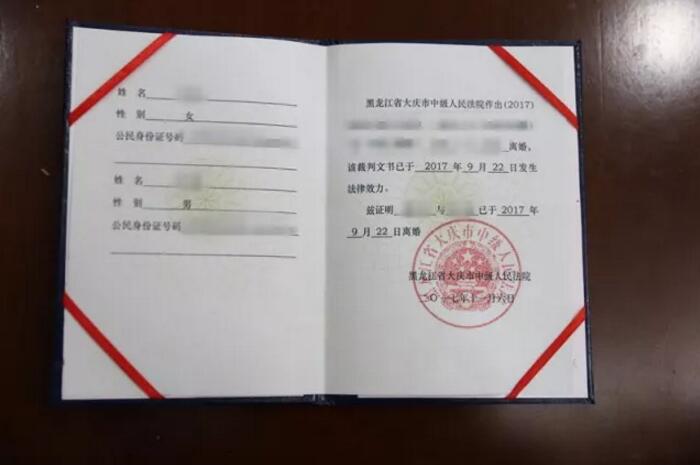 姓 名
性 别 女
公民身份证号码
姓 名
性 别 男
公民身份证号码
黑龙江省大庆市中级人民法院作出(2017)
离婚,
该裁判文书已于 2017 年 9 月 22 日发生
法律效力。
兹证明 与 已于 2017 年
9 月 22 日离婚
黑龙江省大庆市中级人民法院
二〇一七年十一月六日
黑龙江省大庆市中级人民法院